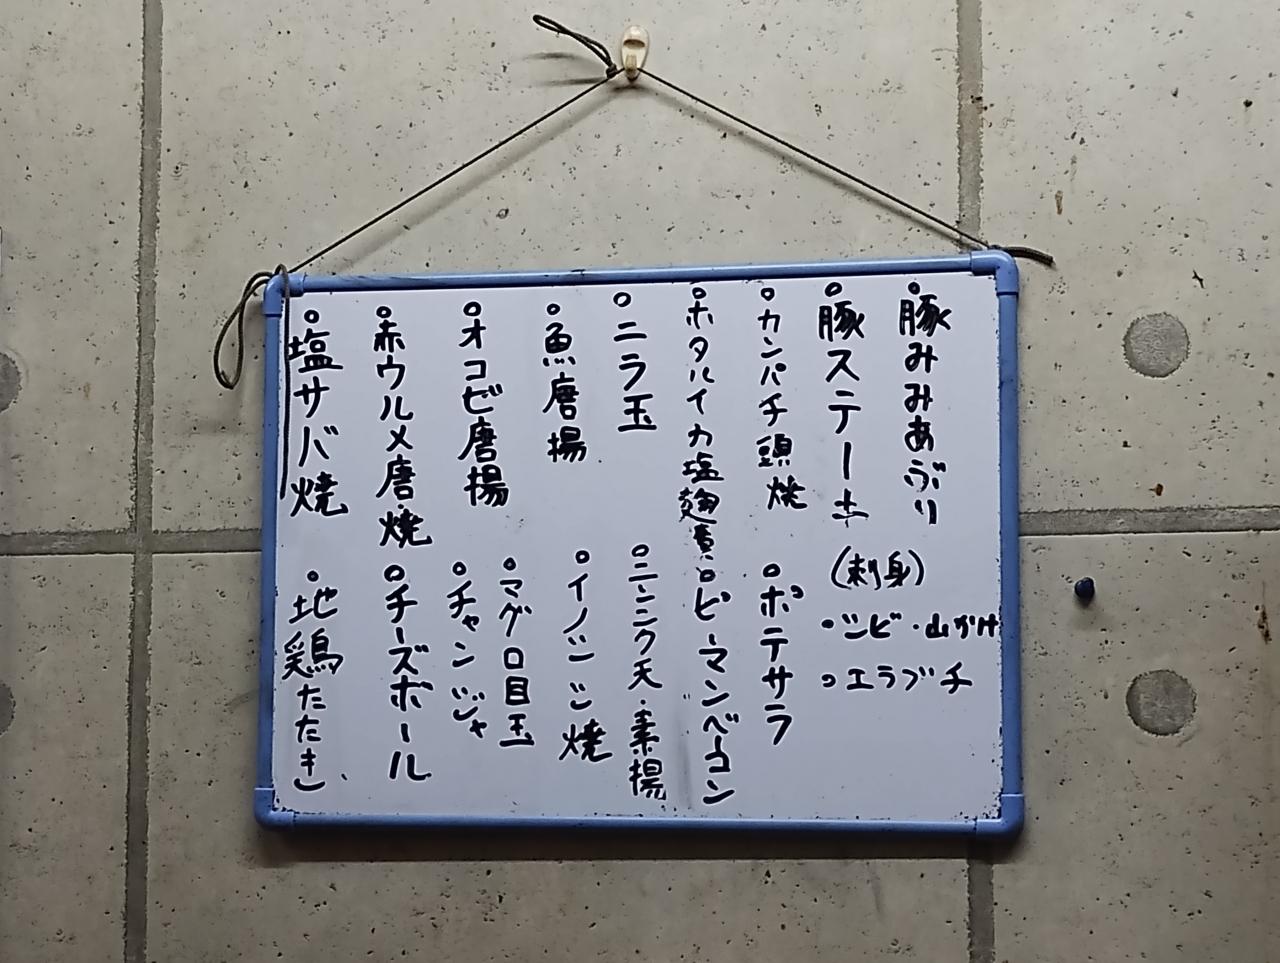 豚みみあぶり
豚ステーキ
カンパチ頭焼
ホタルイカ塩麹漬
ニラ玉
魚唐揚
オコゼ唐揚
赤ウルメ唐・焼
塩サバ焼
(刺身)
シビ・山かけ
エラブチ
ポテサラ
ピーマンベーコン
ニンニク天・素揚
イノシシ焼
マグロ目玉
チャンジャ
チーズボール
地鶏たたき